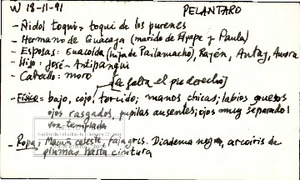 W 18-11-91 PELANTARO
- Ñidol toqui = toqui de los purenes
- Hermano de Guácaya (marido de Ayape y Paula)
- Esposas: Guacolda (hija de Pailamacho), Rayén, Antay, Aurora
- Hijo: José - Antipangui
- Caballo: moro [a falta el pie derecho]
- Físico = bajo, cojo, torcido; manos chicas; labios gruesos
ojos rasgados, pupilas ausentes; ojos muy separados
voz templada
- Ropa: Manta celeste, faja gris. Diadema negra, arcoiris de
plumas hasta cintura